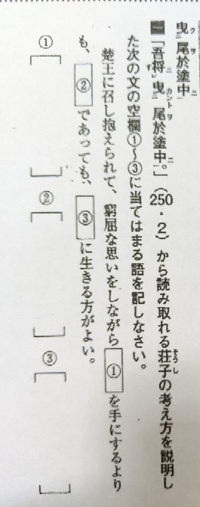 曳尾於塗中
クヲニ
二「吾将曳尾於塗中。」(250・2)から読み取れる荘子の考え方を説明し
た次の文の空欄①~③に当てはまる語を記しなさい。
楚王に召し抱えられて、窮屈な思いをしながら①を手にするより
も、②であっても、③に生きる方がよい。
①
②
③